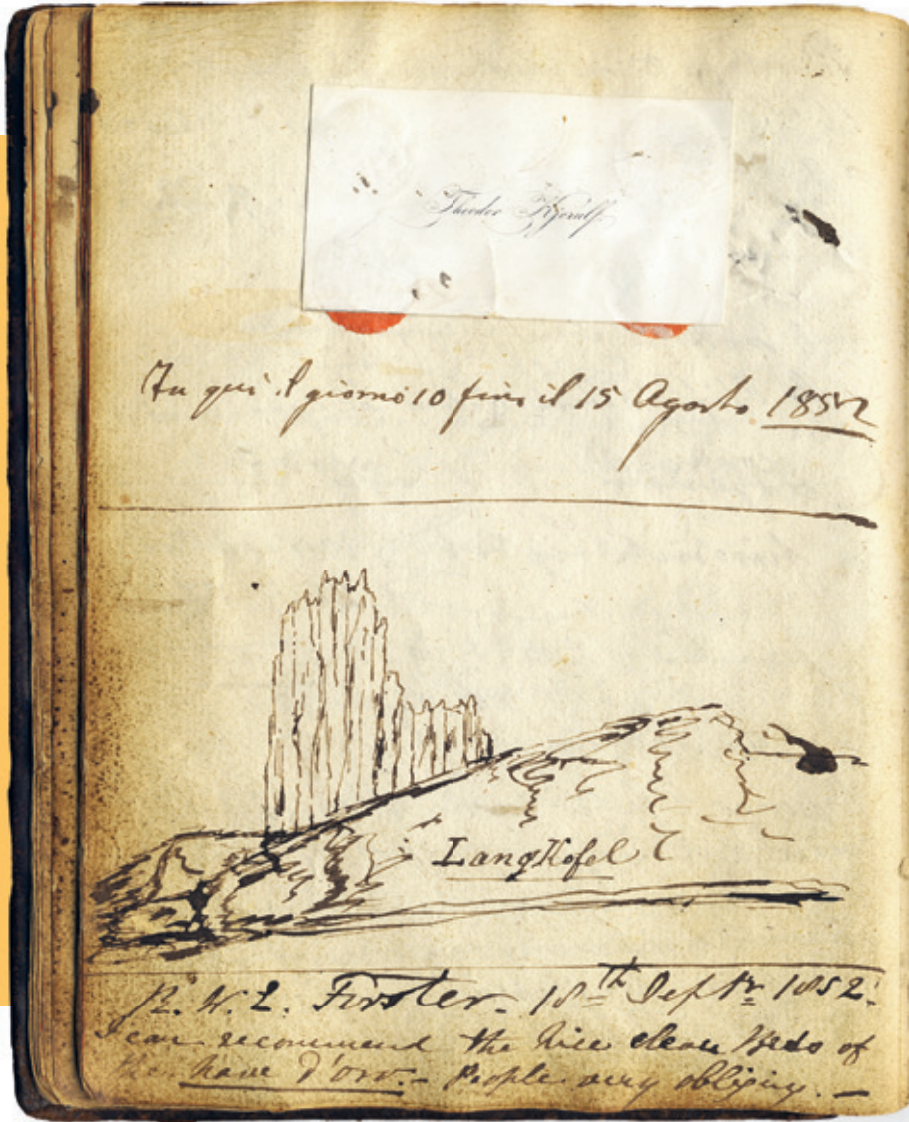 Theodor Kjerulf
Fu qui il giorno 10 fino il 15 Agosto 1852
Langkofel
18th Septr 1852.
can recommend the nice clean Beds of
the Nave d'oro. – People very obliging. –